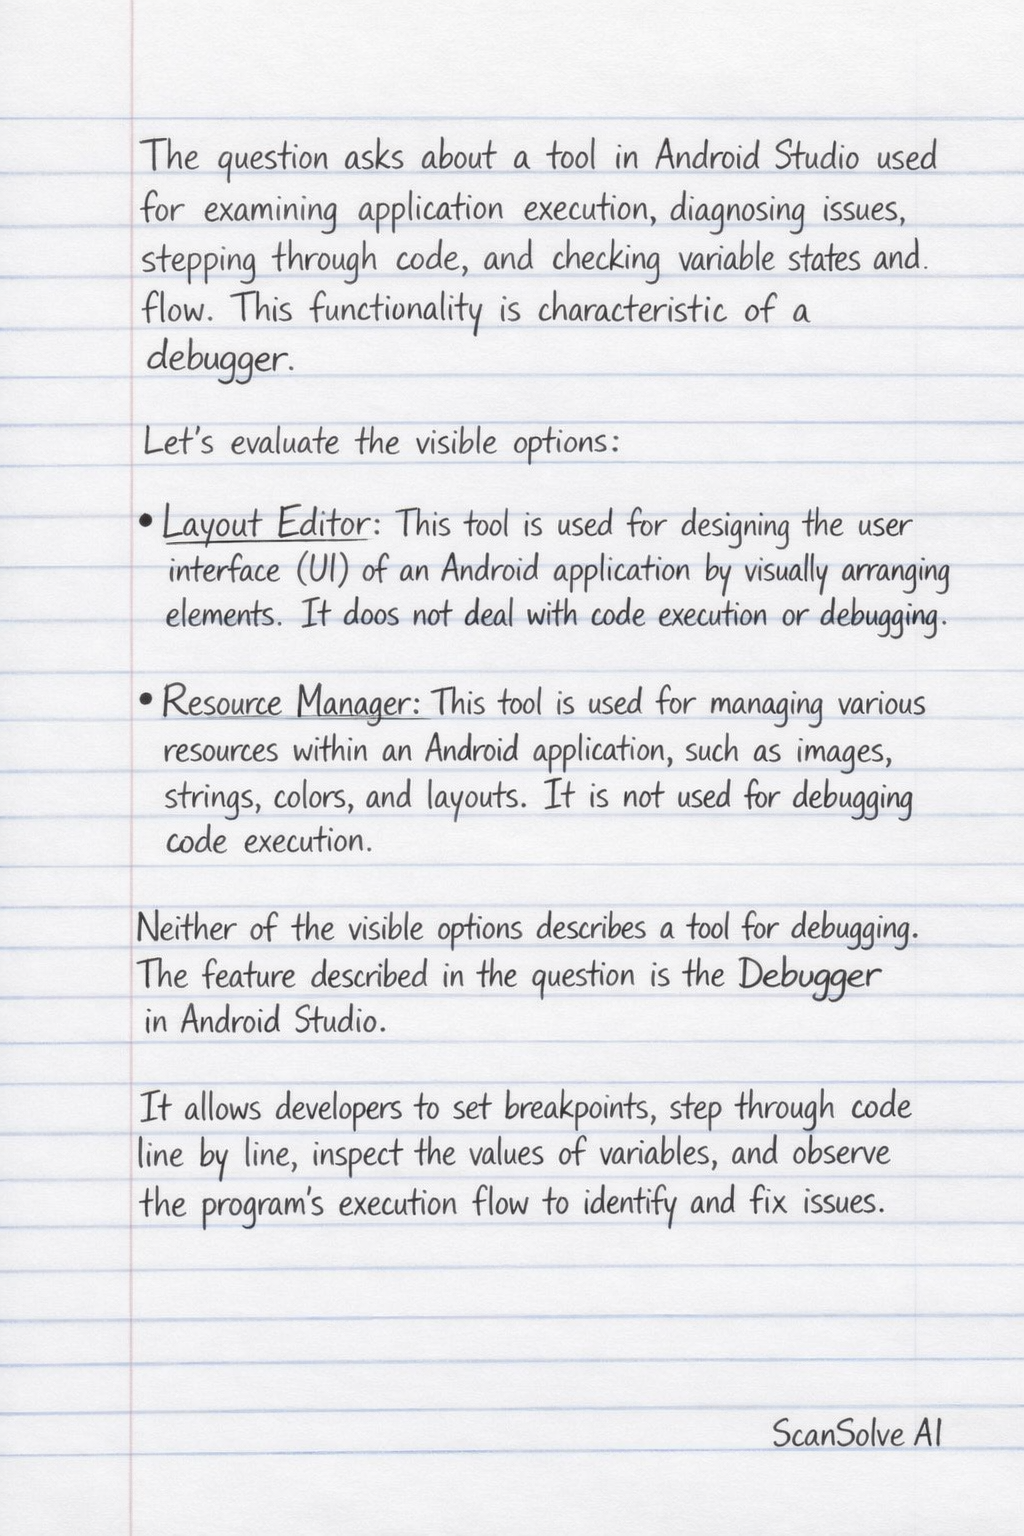 The question asks about a tool in Android Studio used
for examining application execution, diagnosing issues,
stepping through code, and checking variable states and.
flow. This functionality is characteristic of a
debugger.
Let's evaluate the visible options:
• Layout Editor: This tool is used for designing the user
interface (UI) of an Android application by visually arranging
elements. It doos not deal with code execution or debugging.
• Resource Manager: This tool is used for managing various
resources within an Android application, such as images,
strings, colors, and layouts. It is not used for debugging
code execution.
Neither of the visible options describes a tool for debugging.
The feature described in the question is the Debugger
in Android Studio.
It allows developers to set breakpoints, step through code
line by line, inspect the values of variables, and observe
the program's execution flow to identify and fix issues.
ScanSolve AI